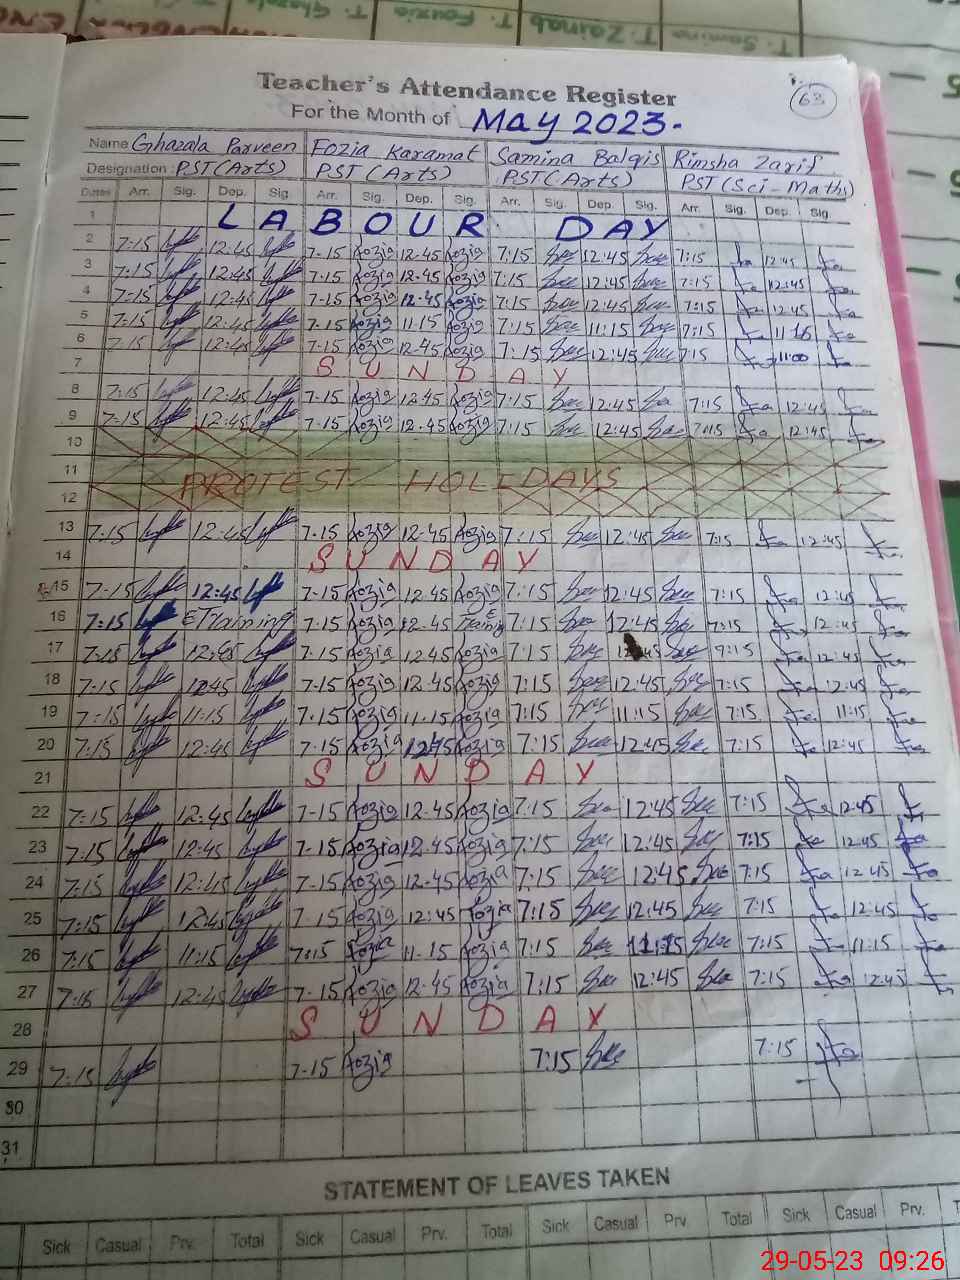 T. Samina T. Zainab T. Fouzia T. Ghazala
Teacher's Attendance Register
63
For the Month of May 2023.
Name Ghazala Parveen Fozia Karamat Samina Balqis Rimsha Zarif
Designation: PST (Arts) PST (Arts) PST (Arts) PST (Sci-Maths)
Dates Arr. Sig. Dep. Sig. Arr. Sig. Dep. Sig. Arr. Sig. Dep. Sig. Arr. Sig. Dep. Sig.
1 LABOUR DAY
2 7:15 12:45 7-15 Fozia 12.45 Fozia 7:15 12:45 7:15 12:45
3 7:15 12:45 7-15 Fozia 12.45 Fozia 7:15 12:45 7:15 12:45
4 7:15 12:45 7-15 Fozia 12-45 Fozia 7:15 12:45 7:15 12:45
5 7:15 12:45 7-15 Fozia 11-15 Fozia 7:15 11:15 7:15 11:16
6 7:15 12:45 7-15 Fozia 12-45 Fozia 7:15 12:45 7:15 11:00
7 SUNDAY
8 7:15 12:45 7-15 Fozia 12.45 Fozia 7:15 12:45 7:15 12:45
9 7:15 12:45 7-15 Fozia 12-45 Fozia 7:15 12:45 7:15 12:45
10
11 PROTEST HOLIDAYS
12
13 7:15 12:45 7-15 Fozia 12-45 Fozia 7:15 12:45 7:15 12:45
14 SUNDAY
15 7-15 12:45 7-15 Fozia 12.45 Fozia 7:15 12:45 7:15 12:45
16 7:15 E Training 7-15 Fozia 12-45 E Traing 7:15 12:45 7:15 12:45
17 7:15 12:45 7-15 Fozia 12.45 Fozia 7:15 12:45 7:15 12:45
18 7:15 12:45 7-15 Fozia 12.45 Fozia 7:15 12:45 7:15 12:45
19 7:15 11:15 7-15 Fozia 11-15 Fozia 7:15 11:15 7:15 11:15
20 7:15 12:45 7-15 Fozia 12:45 Fozia 7:15 12:45 7:15 12:45
21 SUNDAY
22 7:15 12:45 7-15 Fozia 12-45 Fozia 7:15 12:45 7:15 12:45
23 7:15 12:45 7-15 Fozia 12.45 Fozia 7:15 12:45 7:15 12:45
24 7:15 12:45 7-15 Fozia 12-45 Fozia 7:15 12:45 7:15 12:45
25 7:15 12:45 7-15 Fozia 12:45 Fozia 7:15 12:45 7:15 12:45
26 7:15 11:15 7:15 Fozia 11-15 Fozia 7:15 11:15 7:15 11:15
27 7:15 12:45 7-15 Fozia 12.45 Fozia 7:15 12:45 7:15 12:45
28 SUNDAY
29 7:15 7-15 Fozia 7:15 7:15
30
31
STATEMENT OF LEAVES TAKEN
Sick Casual Prv. Total Sick Casual Prv. Total Sick Casual Prv. Total Sick Casual Prv.
29-05-23 09:26